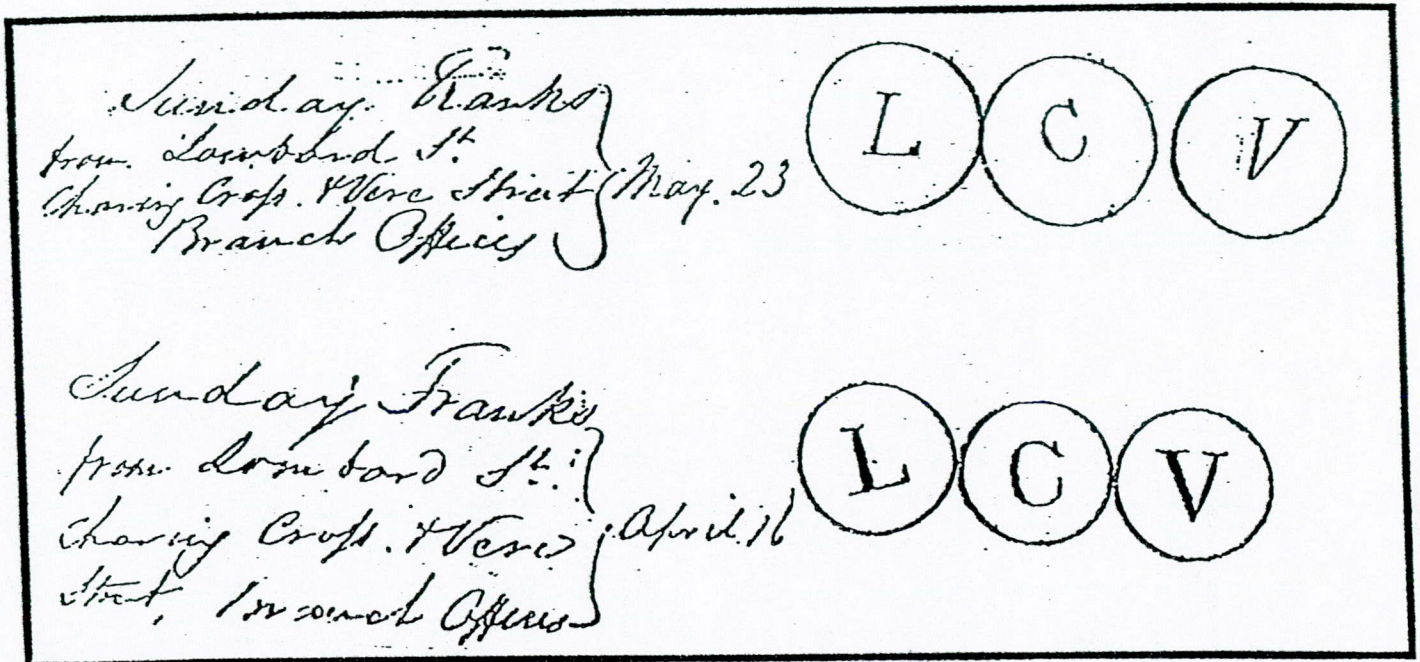 Sunday Franks
from Lombard St.
Charing Cross. & Vere Street
Branch Offices
May. 23
L C V
Sunday Franks
from Lombard St.
Charing Cross. & Vere
Street, Branch Offices
April 16
L C V